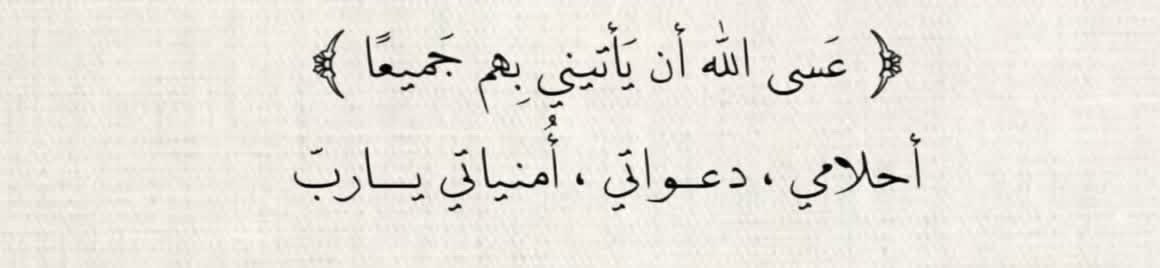 ﴿ عَسى الله أن يَأتيني بِهم جَميعًا ﴾
أحلامي ، دعـواتي ، أُمنياتي يـــاربّ